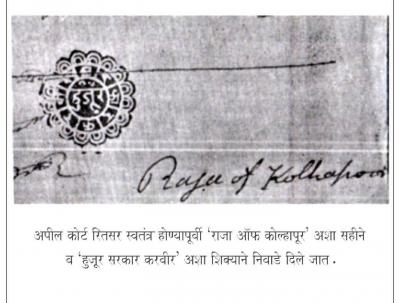 हुजूर
Raja of Kolhapoor
अपील कोर्ट रितसर स्वतंत्र होण्यापूर्वी ‘राजा ऑफ कोल्हापूर’ अशा सहीने
व ‘हुजूर सरकार करवीर’ अशा शिक्याने निवाडे दिले जात.